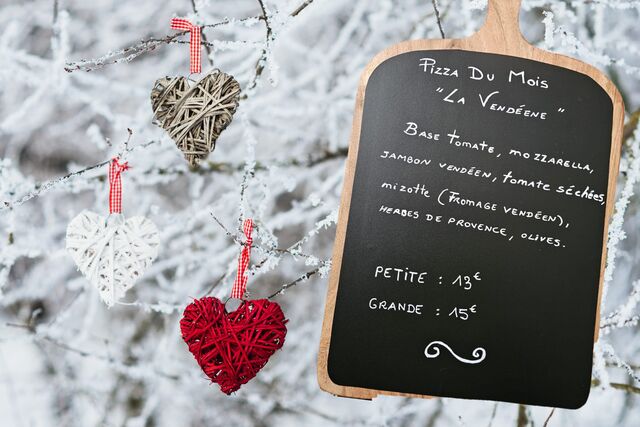 Pizza Du Mois
"La Vendéene"
Base tomate, mozzarella,
jambon vendéen, tomate séchées,
mizotte (Fromage vendéen),
herbes de provence, olives.
Petite : 13€
Grande : 15€